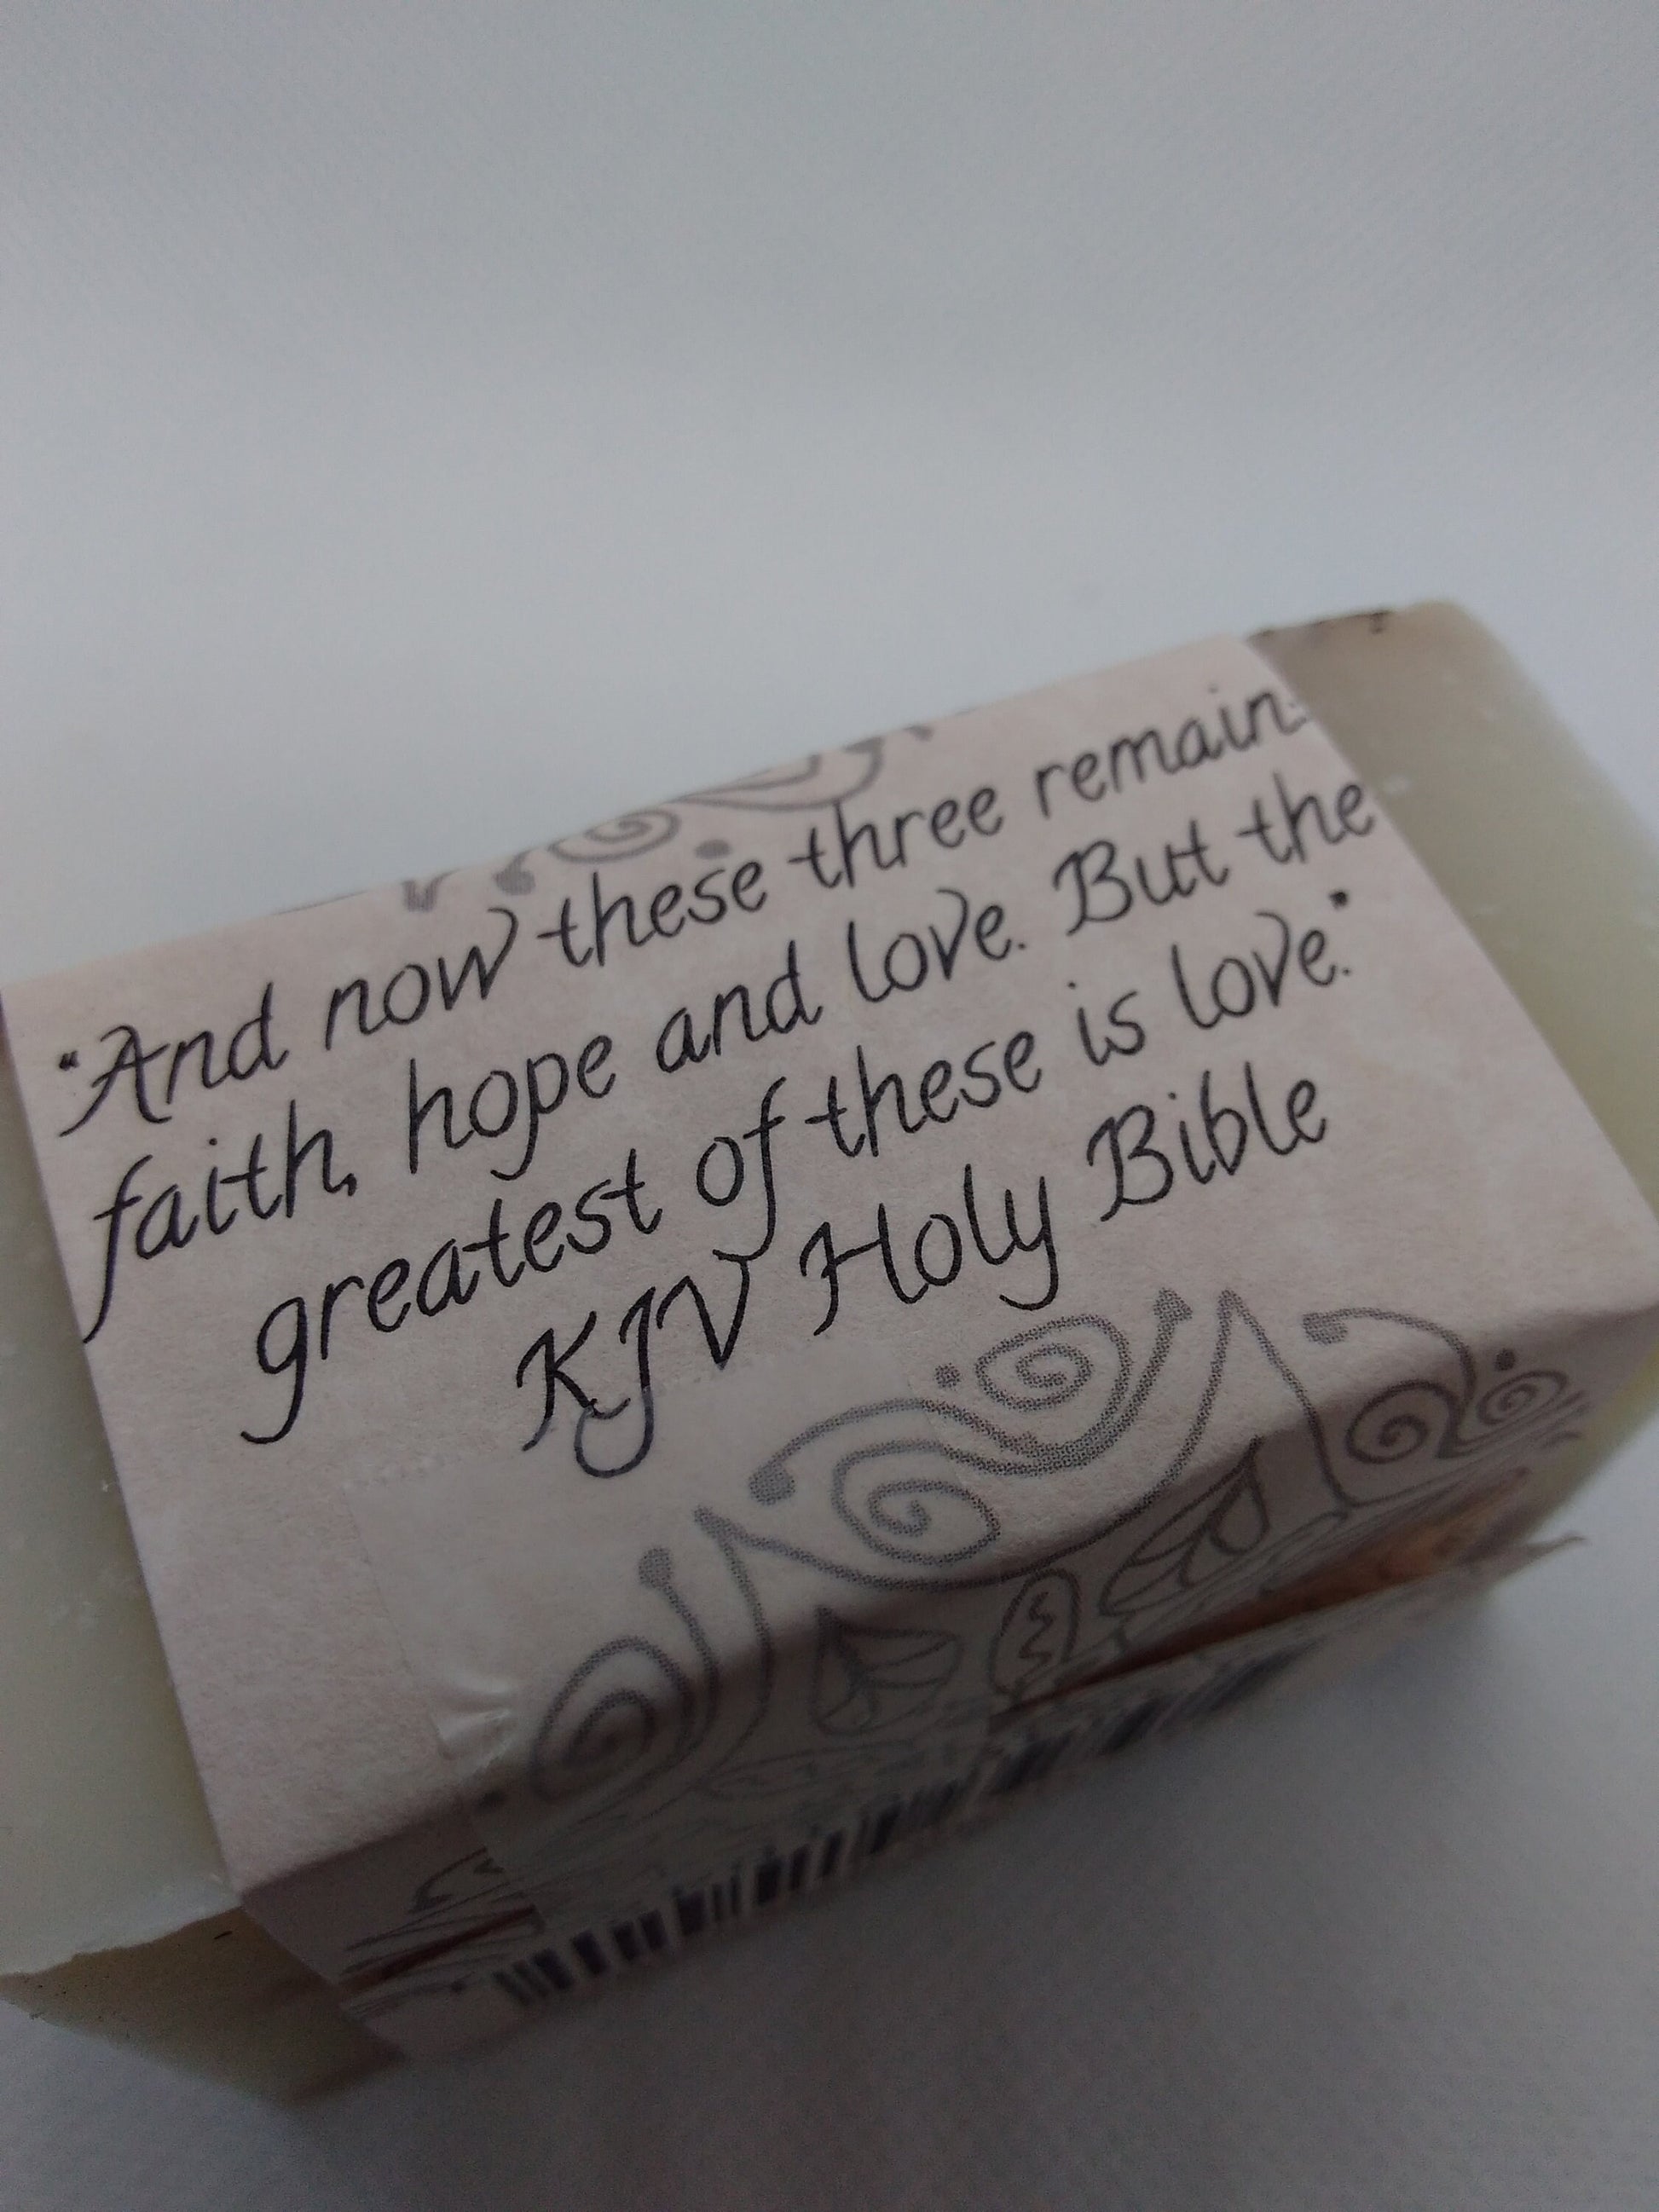 "And now these three remain:
faith, hope and love. But the
greatest of these is love."
KJV Holy Bible